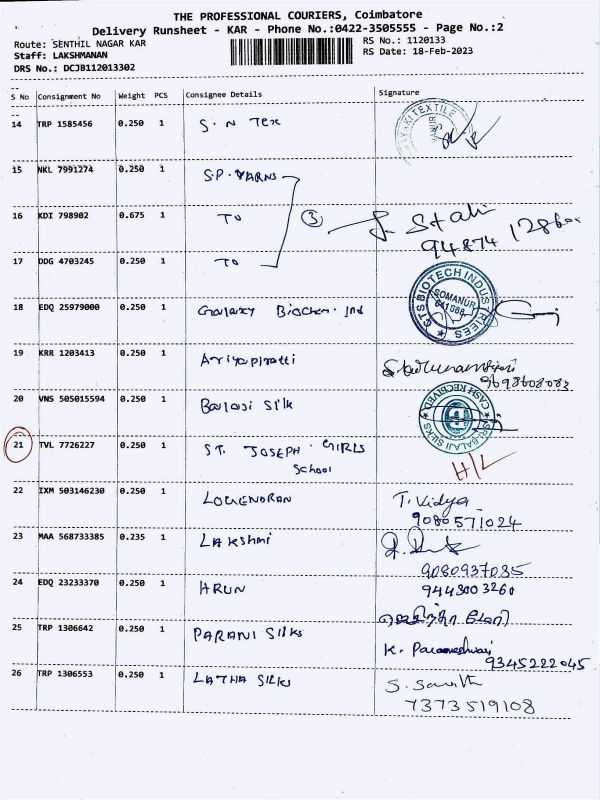 THE PROFESSIONAL COURIERS, Coimbatore
Delivery Runsheet - KAR - Phone No.:0422-3505555 - Page No.:2
Route: SENTHIL NAGAR KAR
RS No.: 1120133
Staff: LAKSHMANAN
RS Date: 18-Feb-2023
DRS No.: DCJB112013302
S No Consignment No Weight PCS Consignee Details Signature
14 TRP 1585456 0.250 1 S. N Tex
15 NKL 7991274 0.250 1 S.P. YARNS
16 KDI 798902 0.675 1 TO ③
94874
17 DDG 4703245 0.250 1 TO
18 EDQ 25979000 0.250 1 Galaxy Biochem. Ind GTS BIOTECH INDUSTRIEES SOMANUR
19 KRR 1203413 0.250 1 Ariyapiratti
9698608083
20 VNS 505015594 0.250 1 Balaji Silk SRI BALAJI SILKS CASH RECEIVED
21 TVL 7726227 0.250 1 ST. JOSEPH. GIRLS
School H/L
22 IXM 503146230 0.250 1 LOGENDRAN T. Vidya
9080571024
23 MAA 568733385 0.235 1 LAKSHMI
9080937035
24 EDQ 23233370 0.250 1 HRUN 9443003260
25 TRP 1306642 0.250 1 PARANI Silks
K. Parameshwari
9345222045
26 TRP 1306553 0.250 1 LATHA SILKS
7373519108